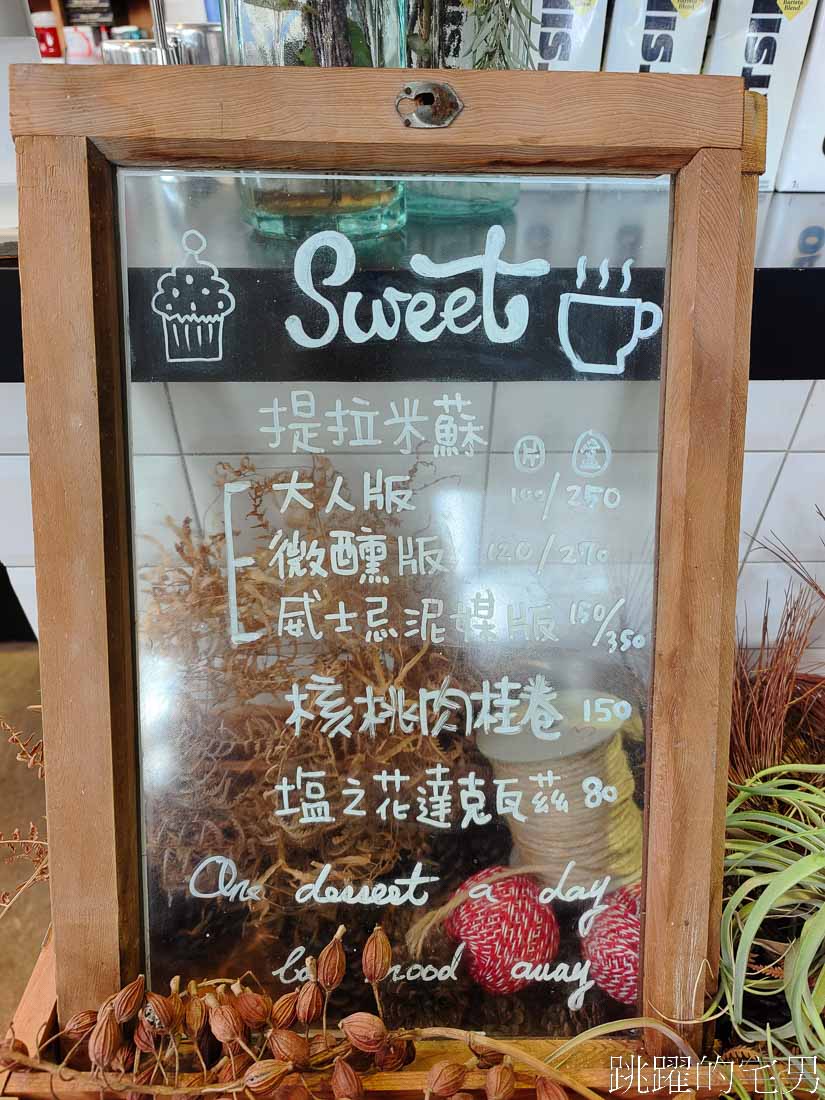 Barista
Blend
Barista
Blend
Sweet
提拉米蘇 片 盒
大人版 100/250
微醺版 120/270
威士忌泥煤版 150/350
核桃肉桂卷 150
塩之花達克瓦茲 80
One dessert a day
mood away
跳躍的宅男